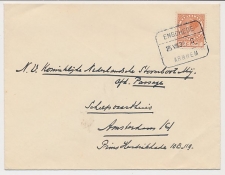 ENSCHEDE
ARNHEM
N.V. Koninklijke Nederlandsche Stoomboot Mij.
Afd. Passage
Scheepvaarthuis
Amsterdam
Prins Hendrikkade 108-119.